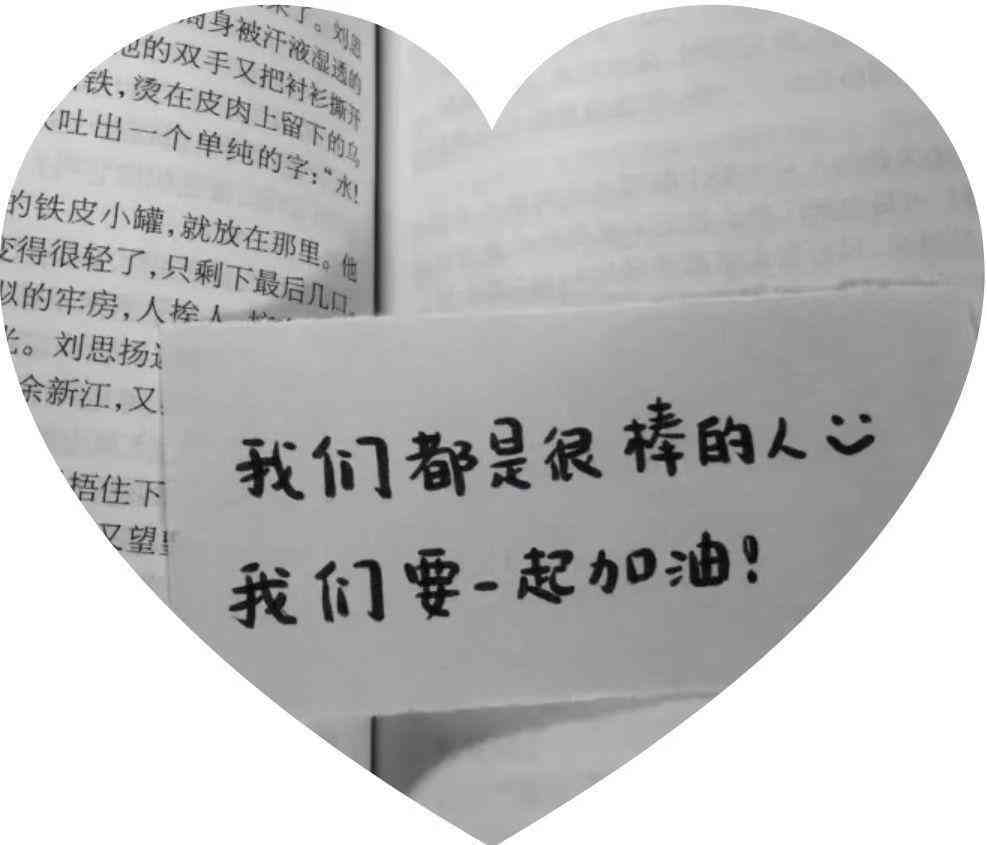 了。刘思
周身被汗液湿透的
他的双手又把衬衫撕开
铁，烫在皮肉上留下的乌
吐出一个单纯的字：“水！
的铁皮小罐，就放在那里。他
变得很轻了，只剩下最后几口。
似的牢房，人挨人
光。刘思扬
余新江，又
捂住下
又望
我们都是很棒的人
我们要一起加油！